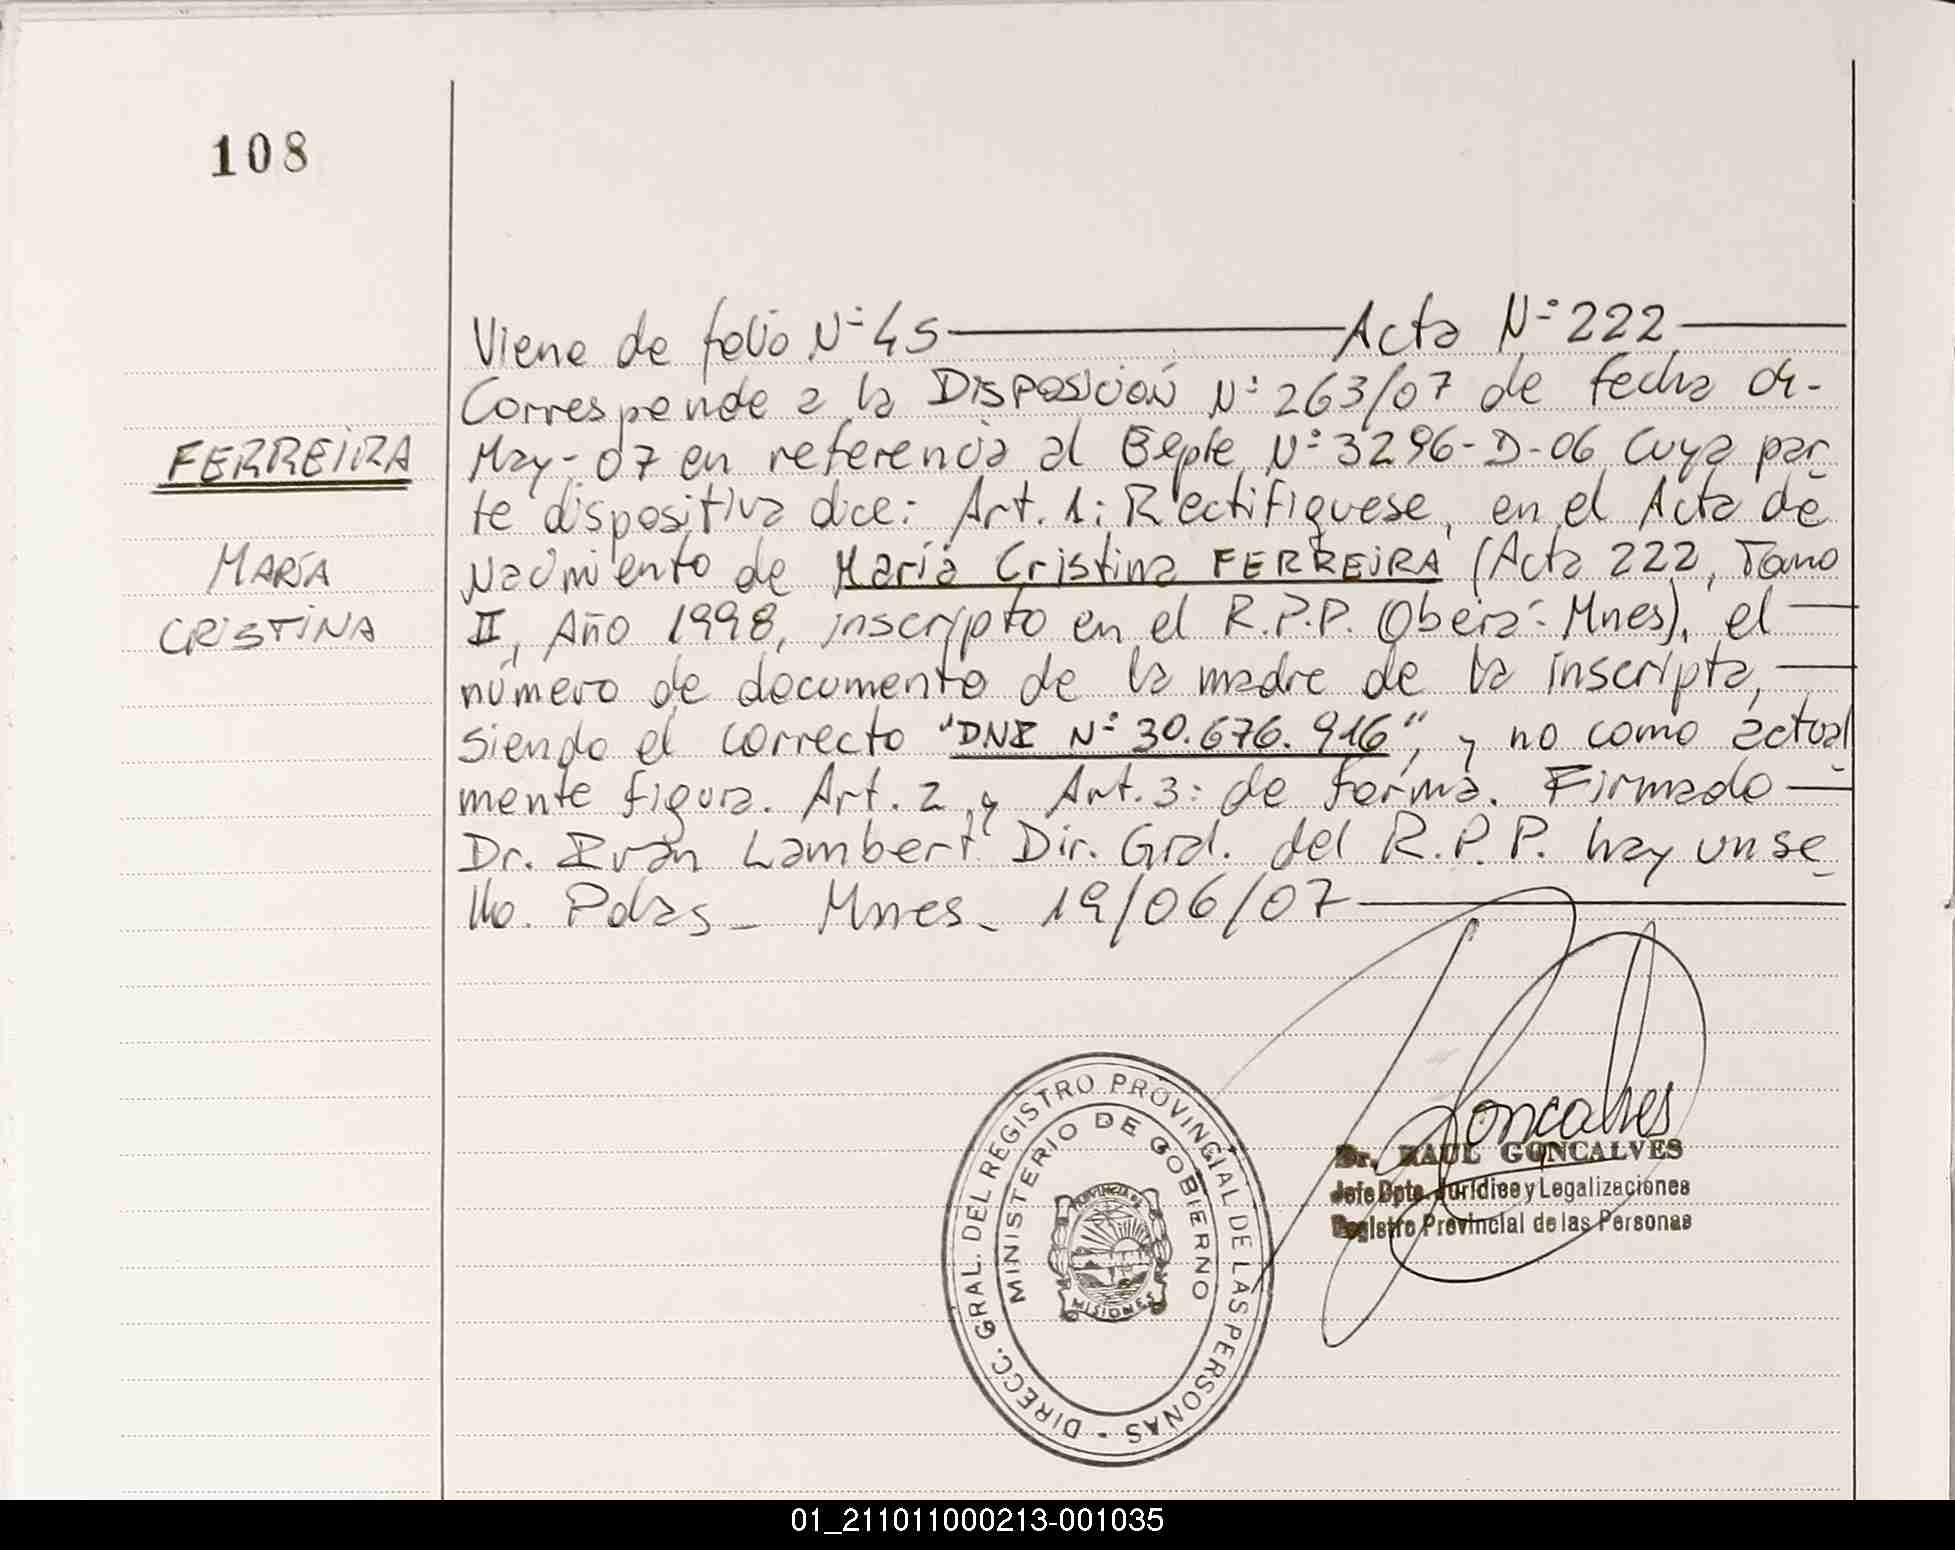 108
Viene de folio Nº 45 Acta Nº 222
Corresponde a la Disposición Nº 263/07 de fecha 04-
May-07 en referencia al Expte Nº 3296-D-06 cuya par-
te dispositiva dice: Art. 1: Rectifíquese, en el Acta de
Nacimiento de María Cristina FERREIRA (Acta 222, Tomo
II, Año 1998, inscripto en el R.P.P. Oberá-Mnes), el
número de documento de la madre de la inscripta,
siendo el correcto "DNI Nº 30.676.916", y no como actual-
mente figura. Art. 2 y Art. 3: de forma. Firmado
Dr. Iván Lambert Dir. Gral. del R.P.P. hay un se-
llo. Pdas - Mnes - 19/06/07
FERREIRA
MARÍA
CRISTINA
DIRECC. GRAL. DEL REGISTRO PROVINCIAL DE LAS PERSONAS -
MINISTERIO DE GOBIERNO
PROVINCIA DE
MISIONES
Goncalves
Dr. RAUL GONCALVES
Jefe Dpto. Jurídico y Legalizaciones
Registro Provincial de las Personas
01_211011000213-001035